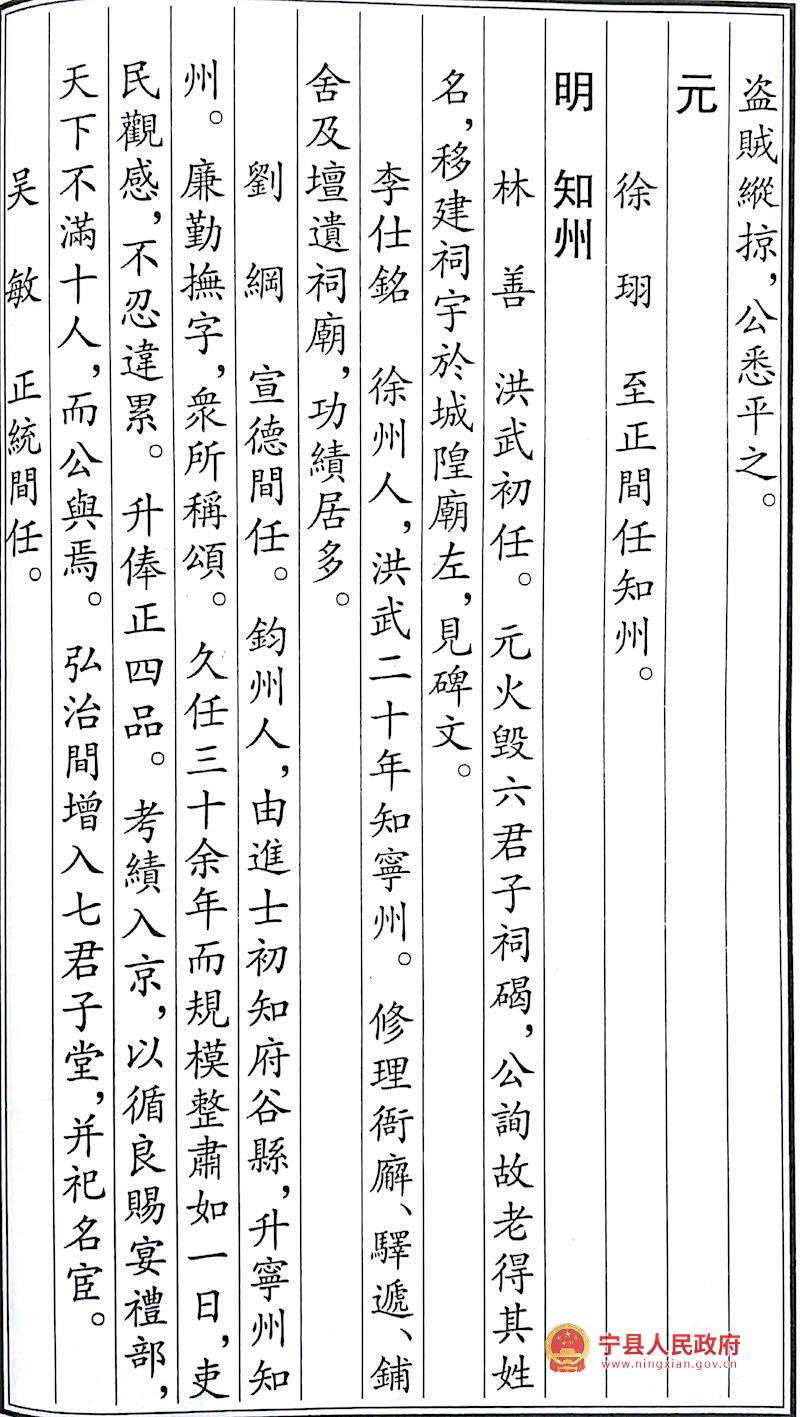 盗賊縱掠，公悉平之。
元
徐　珝　至正間任知州。
明　知州
林　善　洪武初任。元火毁六君子祠碣，公詢故老得其姓
名，移建祠宇於城隍廟左，見碑文。
李仕銘　徐州人，洪武二十年知寧州。修理衙廨、驛遞、鋪
舍及壇遺祠廟，功績居多。
劉　綱　宣德間任。鈞州人，由進士初知府谷縣，升寧州知
州。廉勤撫字，衆所稱頌。久任三十余年而規模整肅如一日，吏
民觀感，不忍違累。升俸正四品。考績入京，以循良賜宴禮部，
天下不滿十人，而公與焉。弘治間增入七君子堂，并祀名宦。
吴　敏　正統間任。
宁县人民政府
www.ningxian.gov.cn